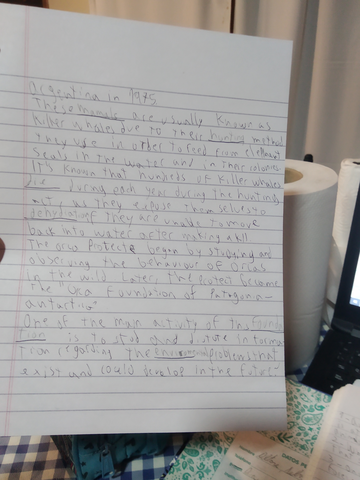 Argentina in 1975
These mamals are usually known as
killer whales due to there hunting method
they use in order to feed from elephant
seals in the water and in there colonies
It's known that hundreds of killer whales
die during each year during the hunting
as they expose themselves to
dehydration They are unable to move
back into water after making a kill
The orca Protecte began by studying and
observing the behaviour of orcas
in the wild Later, the Protect become
The "Orca Foundation of Patagonia-
antartica"
One of the main activity of this founda
tion is to study and informa
tion regarding the problems that
exist and could develop in the future